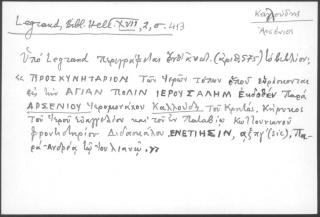 Legrand, Bibl. Hell. XVII, 2, σ. 413
Καλλούδης
Ἀρσένιος
Ὑπὸ Legrand περιγράφεται (ἀριθ. 575) τὸ βιβλίον:
«ΠΡΟΣΚΥΝΗΤΑΡΙΟΝ Τῶν Ἱερῶν τόπων ὁποῦ εὑρίσκονται
εἰς τὴν ΑΓΙΑΝ ΠΟΛΙΝ ΙΕΡΟΥΣΑΛΗΜ Ἐκδοθὲν Παρὰ
ΑΡΣΕΝΙΟΥ Ἱερομονάχου Καλλούδη Τοῦ Κρητός, Κήρυκος
τοῦ Ἱεροῦ εὐαγγελίου καὶ τοῦ ἐν Παταβίῳ Κωττουνιανοῦ
φροντιστηρίου Διδασκάλου. ΕΝΕΤΙΗΣΙΝ, αχπγ' (sic), Πα-
ρὰ Ἀνδρέᾳ τῷ Ἰουλιανῷ.»